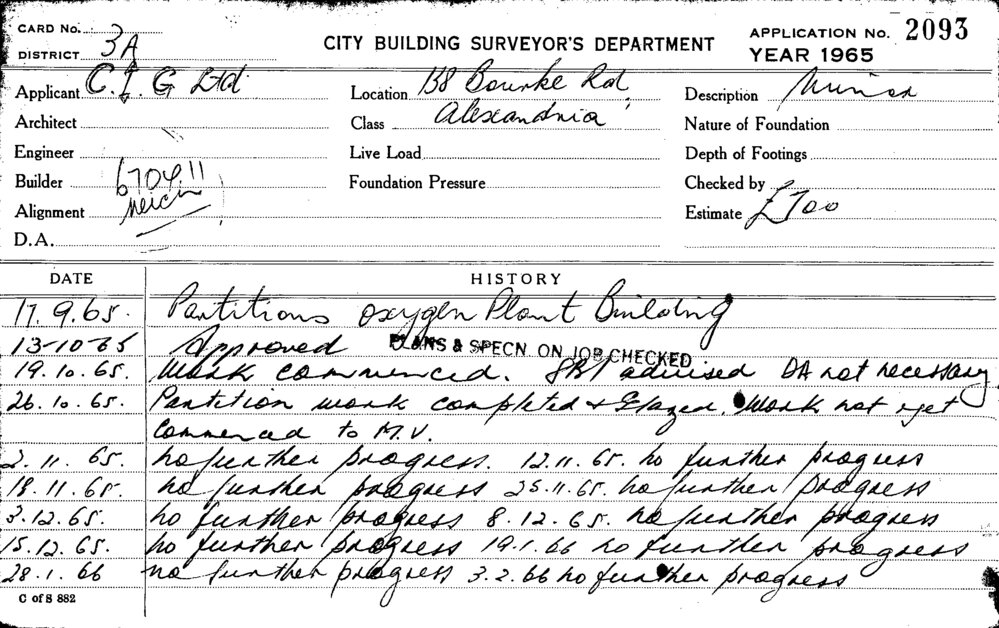 CARD No.
DISTRICT 3A
CITY BUILDING SURVEYOR'S DEPARTMENT
APPLICATION No. 2093
YEAR 1965
Applicant C.I.G Ltd
Location 138 Bourke Rd,
Alexandria
Description Minor
Architect
Class
Nature of Foundation
Engineer
Live Load
Depth of Footings
Builder 670411
Foundation Pressure
Checked by
Alignment
Estimate £700
D.A.
DATE HISTORY
17.9.65. Partitions oxygen Plant Building
13-10-65 Approved PLANS & SPECN. ON JOB CHECKED
19.10.65. Work commenced. advised DA not necessary
26.10.65. Partition work completed + Glazed. Work not yet
commenced to M.V.
2.11.65. no further progress. 12.11.65. no further progress
18.11.65. no further progress 25.11.65. no further progress
3.12.65. no further progress 8.12.65. no further progress
15.12.65. no further progress 19.1.66 no further progress
28.1.66 no further progress 3.2.66 no further progress
C of S 882